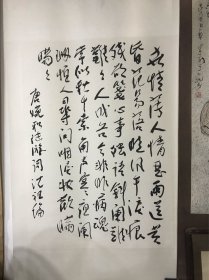 世情薄人情恶雨送黄
昏花易落晓风干泪痕
残欲笺心事独语斜阑
难难人成各今非昨病魂
常似秋千索角声寒夜阑
珊怕人寻问咽泪装欢瞒
瞒瞒
唐婉和陆游词